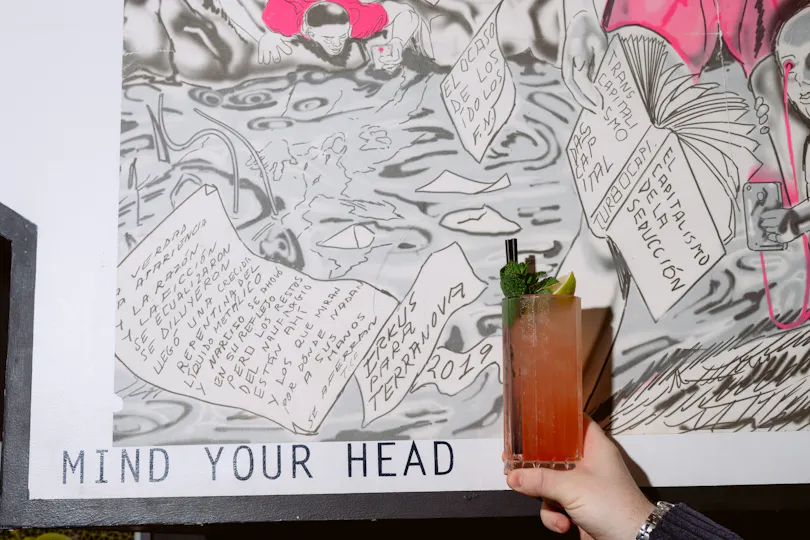 EL OCASO
DE LOS
IDOLOS
F.N
RANS
CAPITALI
SMO
CAP
ITAL
TURBOCAPI.
EL
CAPITALISMO
DE LA
SEDUCCIÓN
VERDAD
APARIENCIA
LA RAZÓN
Y LA FICCIÓN
SE ECUALIZARON
SE DILUYERON
LLEGÓ UNA CRECIDA
REPENTINA DEL
LIQUIDO METALICO
Y NARCISO SE AHOGO
EN SU REFLEJO
PERO LOS RESTOS
DEL NAUFRAGIO
ESTÁN AHI
Y LOS QUE MIRAN
POR DÓNDE NADAN
A SUS MANOS
SE AFERRAN
IRKUS
PARA
TERRANOVA
2019
MIND YOUR HEAD